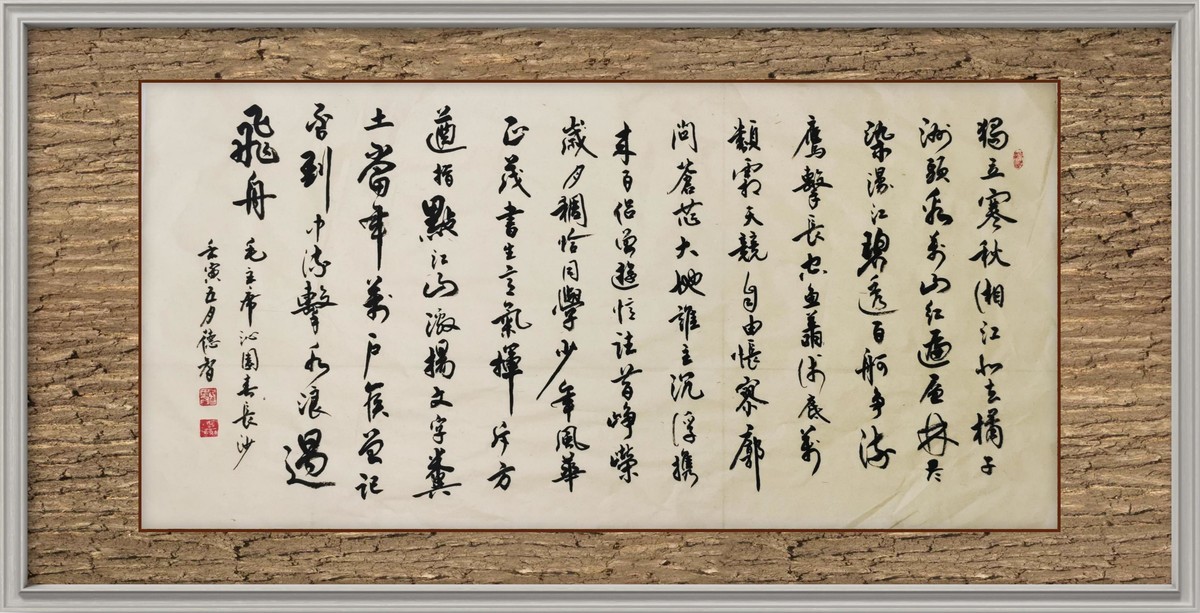 獨立寒秋湘江北去橘子
洲頭看萬山紅遍层林尽
染漫江碧透百舸争流
鹰擊長空魚翔浅底萬
類霜天競自由悵寥廓
問蒼茫大地誰主沉浮携
来百侣曾遊憶往昔峥嵘
歲月稠恰同學少年風華
正茂書生意氣揮斥方
遒指點江山激揚文字糞
土當年萬户侯曾記
否到中流擊水浪遏
飛舟
毛主席沁園春長沙
壬寅五月德